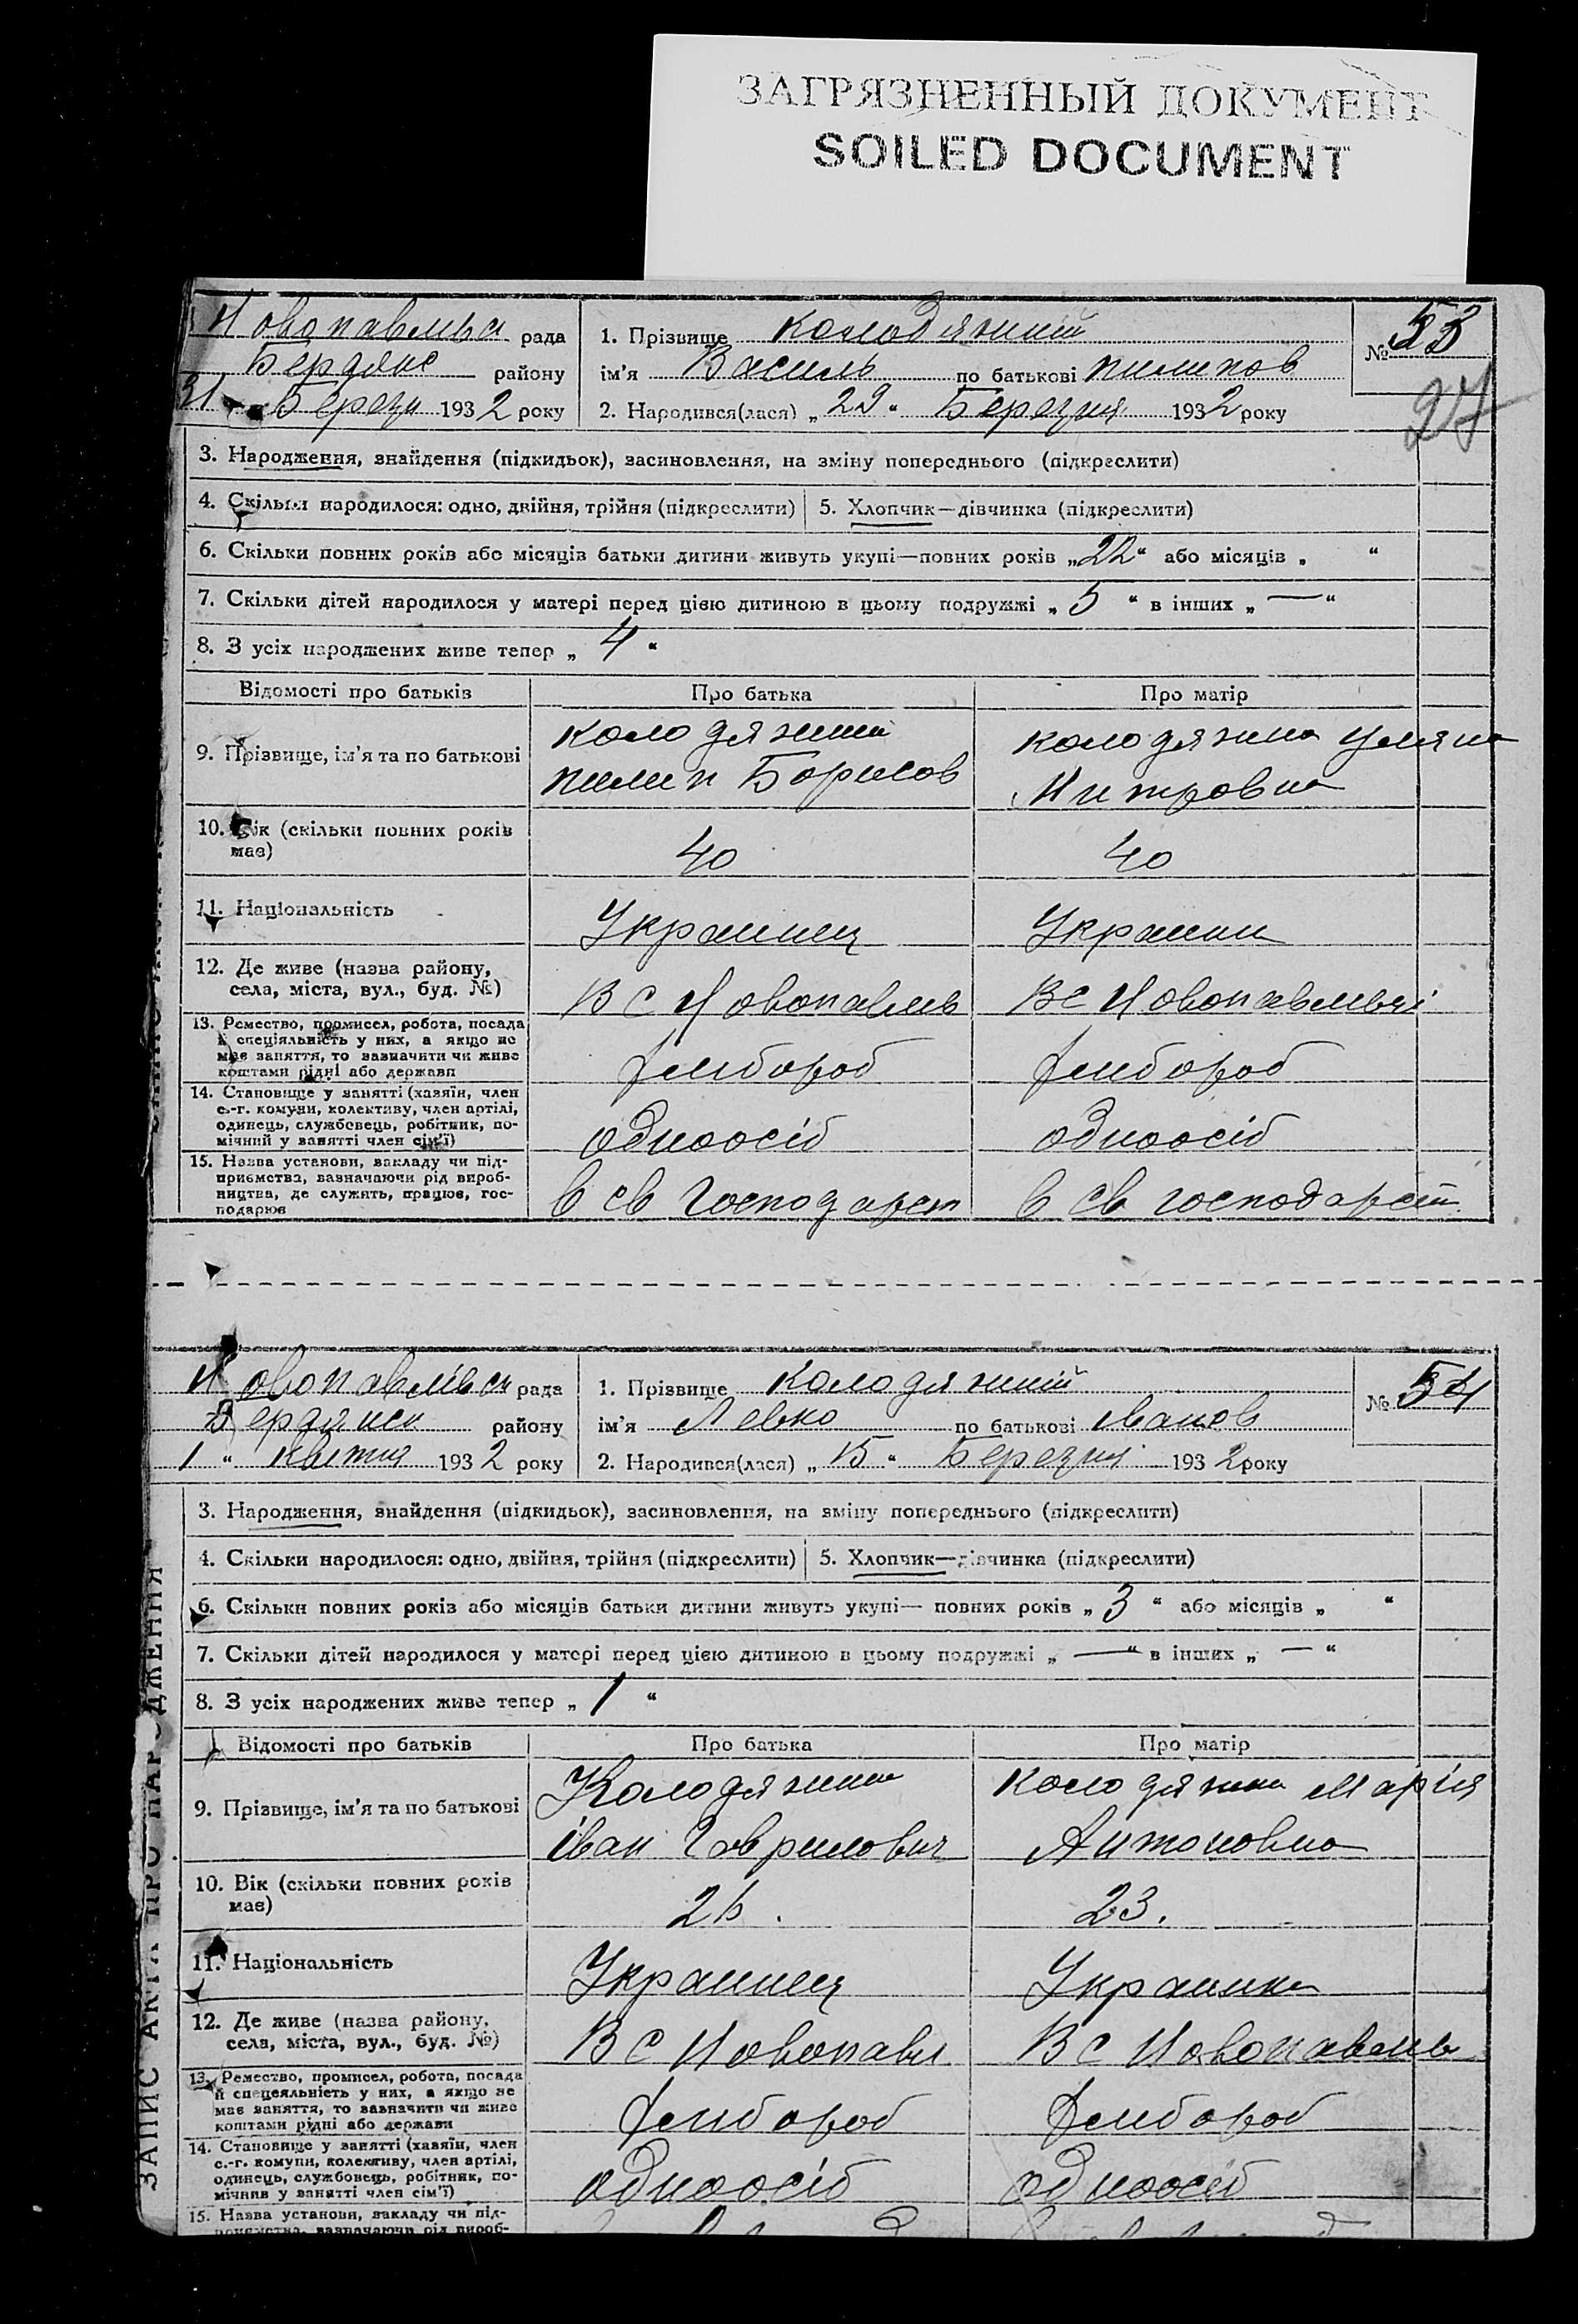 ЗАГРЯЗНЕННЫЙ ДОКУМЕНТ
SOILED DOCUMENT
Новопавлівсь рада
Бердянс району
31 " Березн 1932 року
1. Прізвище Колодяжний
ім'я Василь по батькові Пилипов
2. Народився(лася) „29" Березня 1932 року
№ 53
27
3. Народження, знайдення (підкидьок), засиновлення, на зміну попереднього (підкреслити)
4. Скільки народилося: одно, двійня, трійня (підкреслити) 5. Хлопчик—дівчинка (підкреслити)
6. Скільки повних років або місяців батьки дитини живуть укупі—повних років „22" або місяців „ "
7. Скільки дітей народилося у матері перед цією дитиною в цьому подружжі „5" в інших „—"
8. З усіх народжених живе тепер „4"
Відомості про батьків Про батька Про матір
9. Прізвище, ім'я та по батькові
Колодяжний Колодяжна Уляна
Пилип Борисов Митровна
10. Вік (скільки повних років
має)
40 40
11. Національність Украинец Украинк
12. Де живе (назва району,
села, міста, вул., буд. №)
В с Новопавлів В с Новопавлівці
13. Ремество, промисел, робота, посада
й спеціяльність у них, а якщо не
має заняття, то зазначити чи живе
коштами рідні або держави
Хлібороб Хлібороб
14. Становище у занятті (хазяїн, член
с.-г. комуни, колективу, член артілі,
одинець, службовець, робітник, по-
мічний у занятті член сім'ї)
одноосіб одноосіб
15. Назва установи, закладу чи під-
приємства, зазначаючи рід вироб-
ництва, де служить, працює, гос-
подарює
в св господарст в св господарст
Новопавлівсь рада
Бердянськ району
1 " Квітня 1932 року
1. Прізвище Колодяжний
ім'я Левко по батькові Іванов
2. Народився(лася) „15" Березня 1932 року
№ 54
3. Народження, знайдення (підкидьок), засиновлення, на зміну попереднього (підкреслити)
4. Скільки народилося: одно, двійня, трійня (підкреслити) 5. Хлопчик—дівчинка (підкреслити)
6. Скільки повних років або місяців батьки дитини живуть укупі— повних років „3" або місяців „ "
7. Скільки дітей народилося у матері перед цією дитиною в цьому подружжі „—" в інших „—"
8. З усіх народжених живе тепер „1"
Відомості про батьків Про батька Про матір
9. Прізвище, ім'я та по батькові
Колодяжний Колодяжна Марія
Іван Гаврилович Антоновна
10. Вік (скільки повних років
має)
23.
11. Національність Украинец Украинка
12. Де живе (назва району,
села, міста, вул., буд. №)
В с Новопавл В с Новопавлів
13. Ремество, промисел, робота, посада
й спецеяльність у них, а якщо не
має заняття, то зазначити чи живе
коштами рідні або держави
Хлібороб Хлібороб
14. Становище у занятті (хазяїн, член
с.-г. комуни, колективу, член артілі,
одинець, службовець, робітник, по-
мічник у занятті член сім'ї)
одноосіб одноосіб
15. Назва установи, закладу чи під-
приємства, зазначаючи рід вироб-
ЗАПИС АКТА ПРО НАРОДЖЕННЯ